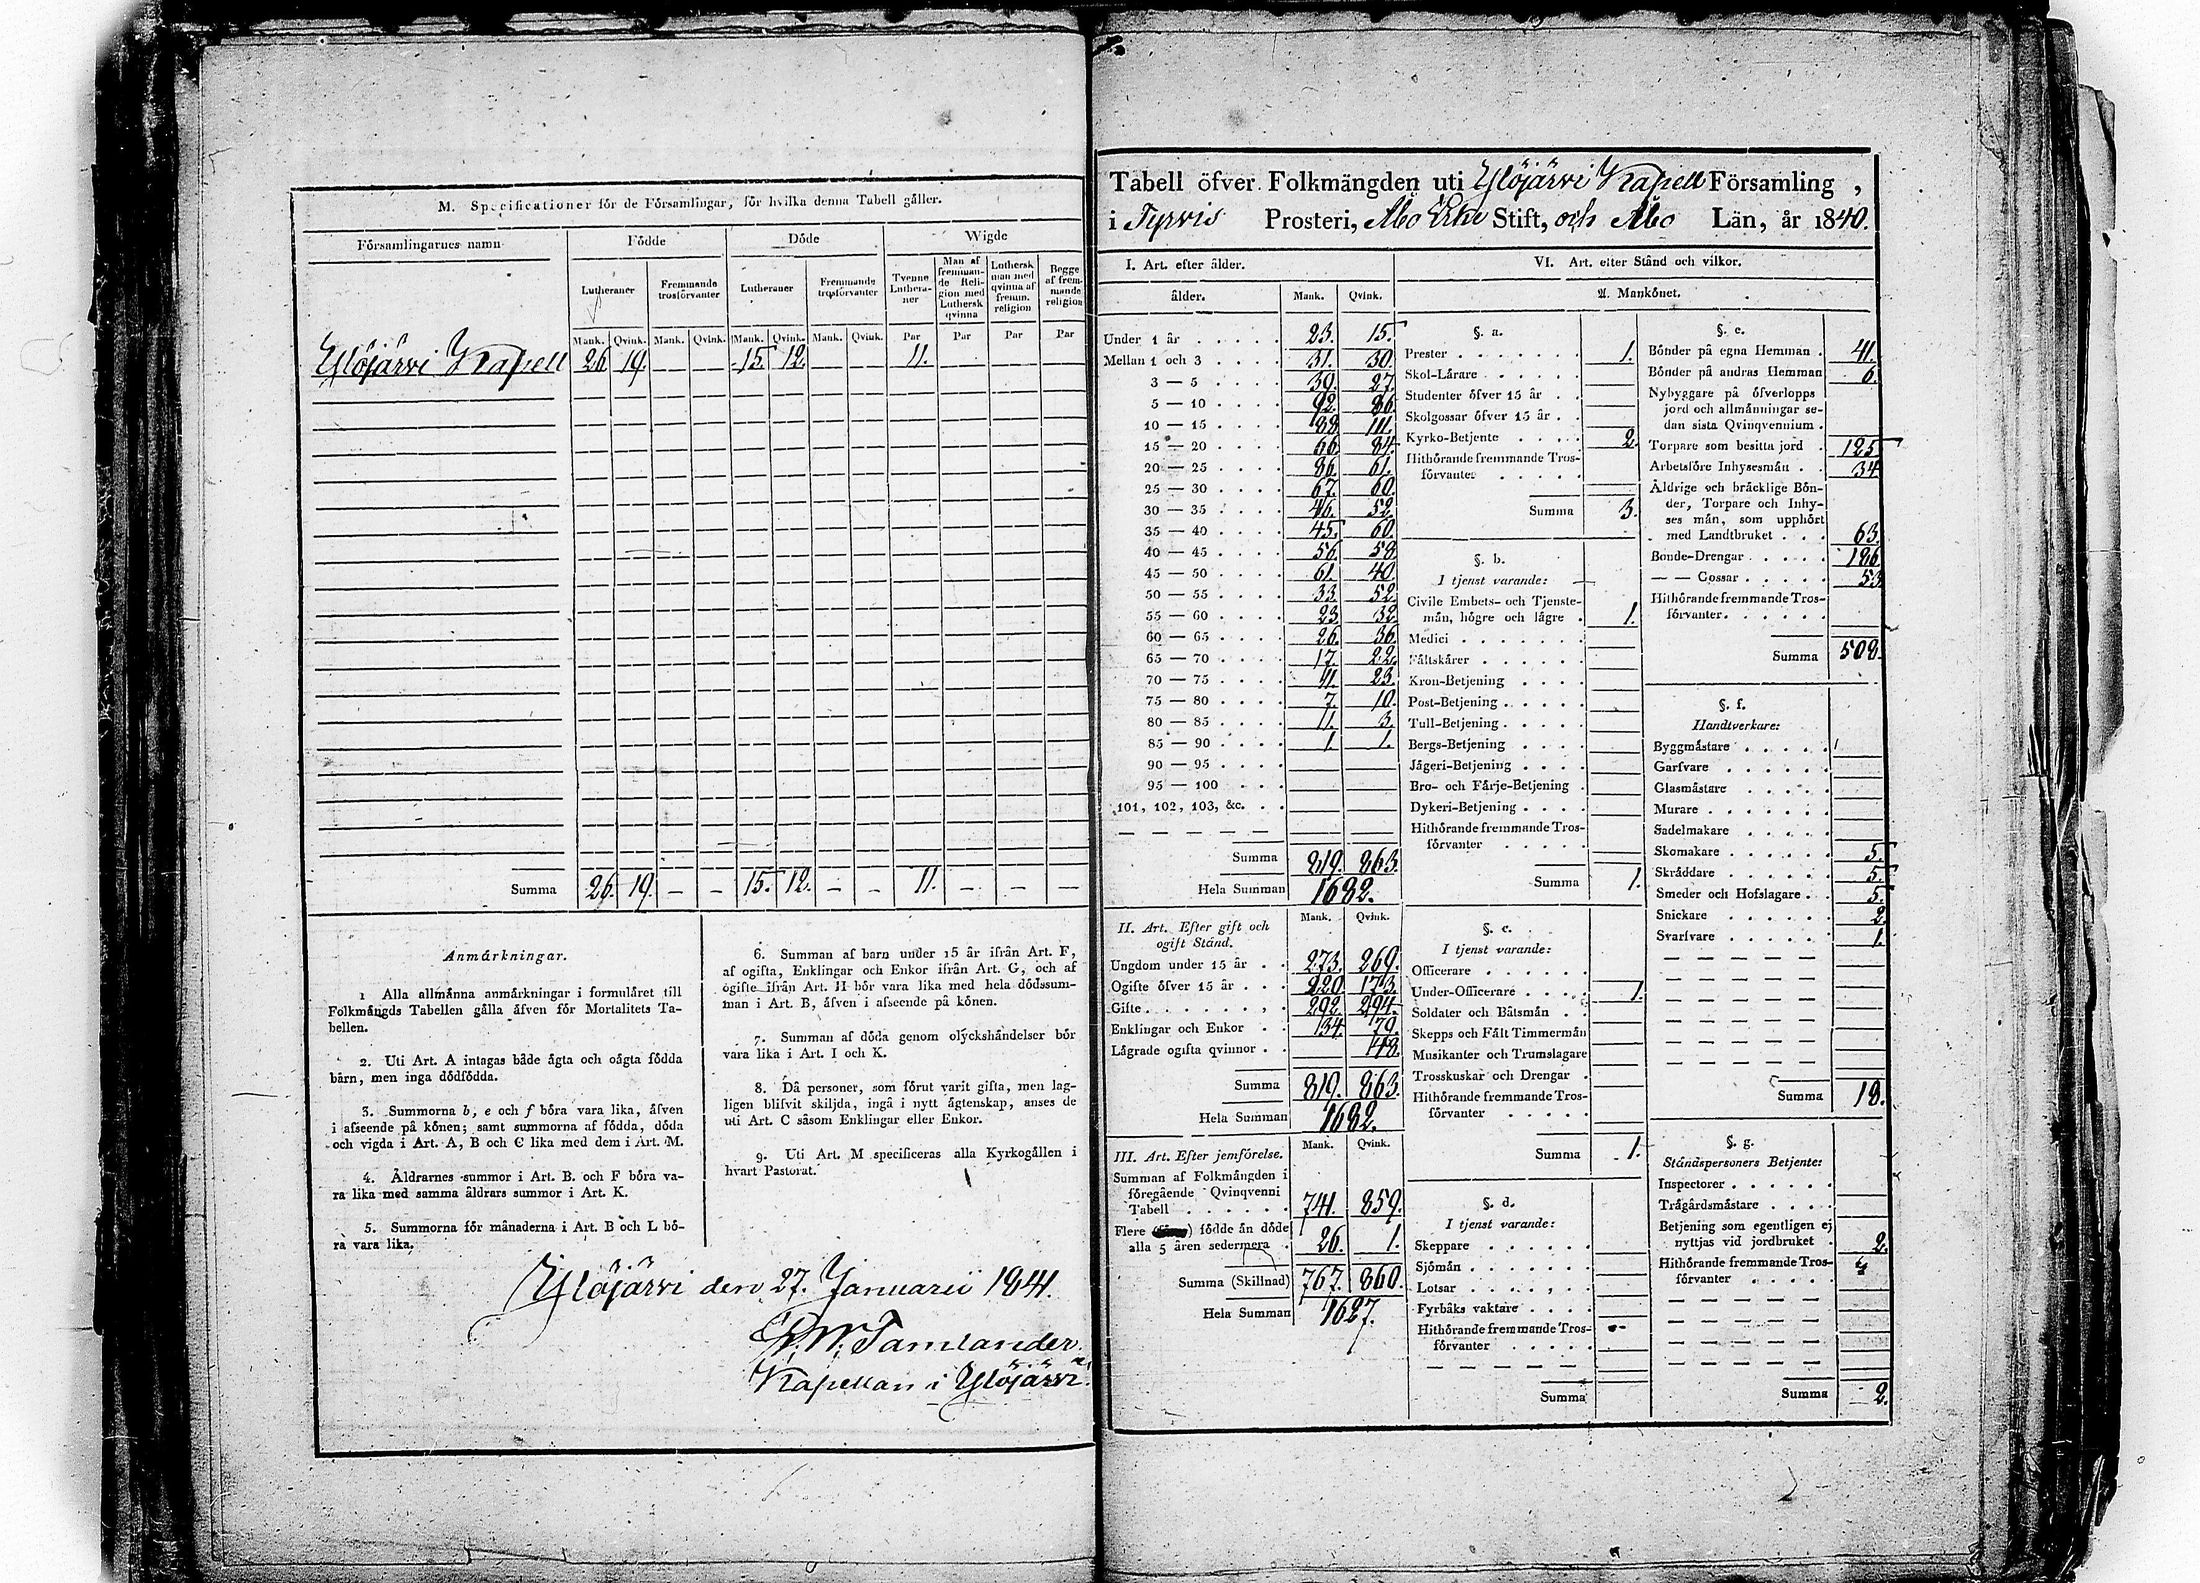 M. Specificationer för de Församlingar, för hvilka denna Tabell gäller.
Församlingarnes namn Födde Döde Wigde
Lutheraner Fremmande trosförvanter Lutheraner Fremmande trosförvanter Tvenne Lutheraner Man af fremmande Religion med Luthersk qvinna Luthersk man med qvinna af fremm. religion Begge af fremmande religion
Mank. Qvink. Mank. Qvink. Mank. Qvink. Mank. Qvink. Par Par Par Par
Ylöjärvi Kapell 26 19. — — 15. 12. — — 11. — — —
Summa 26. 19. — — 15. 12. — — 11. — — —
Anmärkningar.
1 Alla allmänna anmärkningar i formuläret till
Folkmängds Tabellen gälla äfven för Mortalitets Ta-
bellen.
2. Uti Art. A intagas både ägta och oägta födda
barn, men inga dödfödda.
3. Summorna b, e och f böra vara lika, äfven
i afseende på könen; samt summorna af födda, döda
och vigda i Art. A, B och C lika med dem i Art. M.
4. Åldrarnes summor i Art. B. och F böra va-
ra lika med samma åldrars summor i Art. K.
5. Summorna för månaderna i Art. B och L bö-
ra vara lika.
6. Summan af barn under 15 år ifrån Art. F,
af ogifta, Enklingar och Enkor ifrån Art. G, och af
ogifte ifrån Art. H bör vara lika med hela dödssum-
man i Art. B, äfven i afseende på könen.
7. Summan af döda genom olyckshändelser bör
vara lika i Art. I och K.
8. Då personer, som förut varit gifta, men lag-
ligen blifvit skiljda, ingå i nytt ägtenskap, anses de
uti Art. C såsom Enklingar eller Enkor.
9. Uti Art. M specificeras alla Kyrkogällen i
hvart Pastorat.
Ylöjärvi den 27. Januarii 1841.
Tamlander.
Kapellan i Ylöjärvi.
Tabell öfver Folkmängden uti Ylöjärvi Kapell Församling,
i Tyrvis Prosteri, Åbo Erke Stift, och Åbo Län, år 1840.
I. Art. efter ålder.
ålder. Mank. Qvink.
Under 1 år 23. 15.
Mellan 1 och 3 31. 30.
3 — 5 39. 27.
5 — 10 92. 86.
10 — 15 88. 111.
15 — 20 66. 84.
20 — 25 86. 61.
25 — 30 67. 60.
30 — 35 46. 52.
35 — 40 45. 60.
40 — 45 56. 58.
45 — 50 61. 40.
50 — 55 33. 52.
55 — 60 23. 32.
60 — 65 26. 36.
65 — 70 17. 22.
70 — 75 11. 23.
75 — 80 7. 10.
80 — 85 1. 3.
85 — 90 1. 1.
90 — 95
95 — 100
101, 102, 103, &c.
Summa 819. 863.
Hela Summan 1682.
II. Art. Efter gift och ogift Stånd. Mank. Qvink.
Ungdom under 15 år 273. 269.
Ogifte öfver 15 år 220. 173.
Gifte 292. 294.
Enklingar och Enkor 34. 79.
Lägrade ogifta qvinnor 48.
Summa 819. 863.
Hela Summan 1682.
III. Art. Efter jemförelse. Mank. Qvink.
Summan af Folkmängden i
föregående Qvinqvenni
Tabell 741. 859.
Flere födde än döde
alla 5 åren sedermera 26. 1.
Summa (Skillnad) 767. 860.
Hela Summan 1627.
VI. Art. efter Stånd och vilkor.
A. Mankönet.
§. a.
Prester 1.
Skol-Lärare
Studenter öfver 15 år
Skolgossar öfver 15 år
Kyrko-Betjente 2.
Hithörande fremmande Tros-
förvanter
Summa 3.
§. b.
I tjenst varande:
Civile Embets- och Tjenste-
män, högre och lägre 1.
Medici
Fältskärer
Kron-Betjening
Post-Betjening
Tull-Betjening
Bergs-Betjening
Jägeri-Betjening
Bro- och Färje-Betjening
Dykeri-Betjening
Hithörande fremmande Tros-
förvanter
Summa 1.
§. c.
I tjenst varande:
Officerare
Under-Officerare 1.
Soldater och Båtsmän
Skepps och Fält Timmermän
Musikanter och Trumslagare
Trosskuskar och Drengar
Hithörande fremmande Tros-
förvanter
Summa 1.
§. d.
I tjenst varande:
Skeppare
Sjömän
Lotsar
Fyrbåks vaktare
Hithörande fremmande Tros-
förvanter
Summa
§. e.
Bönder på egna Hemman 41.
Bönder på andras Hemman 6.
Nybyggare på öfverlopps
jord och allmänningar se-
dan sista Qvinqvennium
Torpare som besitta jord 125
Arbetsföre Inhysesmän 34
Åldrige och bräcklige Bön-
der, Torpare och Inhy-
ses män, som upphört
med Landtbruket 63.
Bonde-Drengar 186
— — Gossar 53
Hithörande fremmande Tros-
förvanter
Summa 508.
§. f.
Handtverkare:
Byggmästare
Garfvare
Glasmästare
Murare
Sadelmakare
Skomakare 5.
Skräddare 5.
Smeder och Hofslagare 5.
Snickare 2.
Svarfvare 1.
Summa 18.
§. g.
Ståndspersoners Betjente:
Inspectorer
Trägårdsmästare
Betjening som egentligen ej
nyttjas vid jordbruket 2.
Hithörande fremmande Tros-
förvanter
Summa 2.